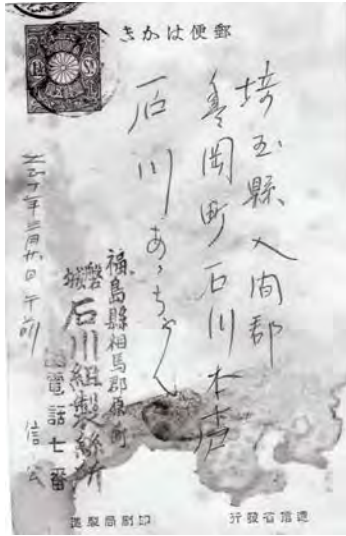 郵便はかき
埼玉縣入間郡
豊岡町石川本店
石川あっちやん
福島縣相馬郡原町
磐城
石川組製絲所
電話七番
年三月廿日午前
信公
逓信省發行
印刷局製造